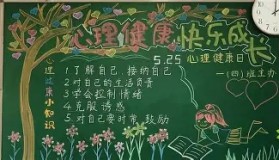 心理健康 快乐成长
5.25心理健康日
一(四)班主办
心理健康小知识
1.了解自己,接纳自己
2.对自己的生活负责
3.学会控制情绪
4.克服诱惑
5.对自己要时常鼓励